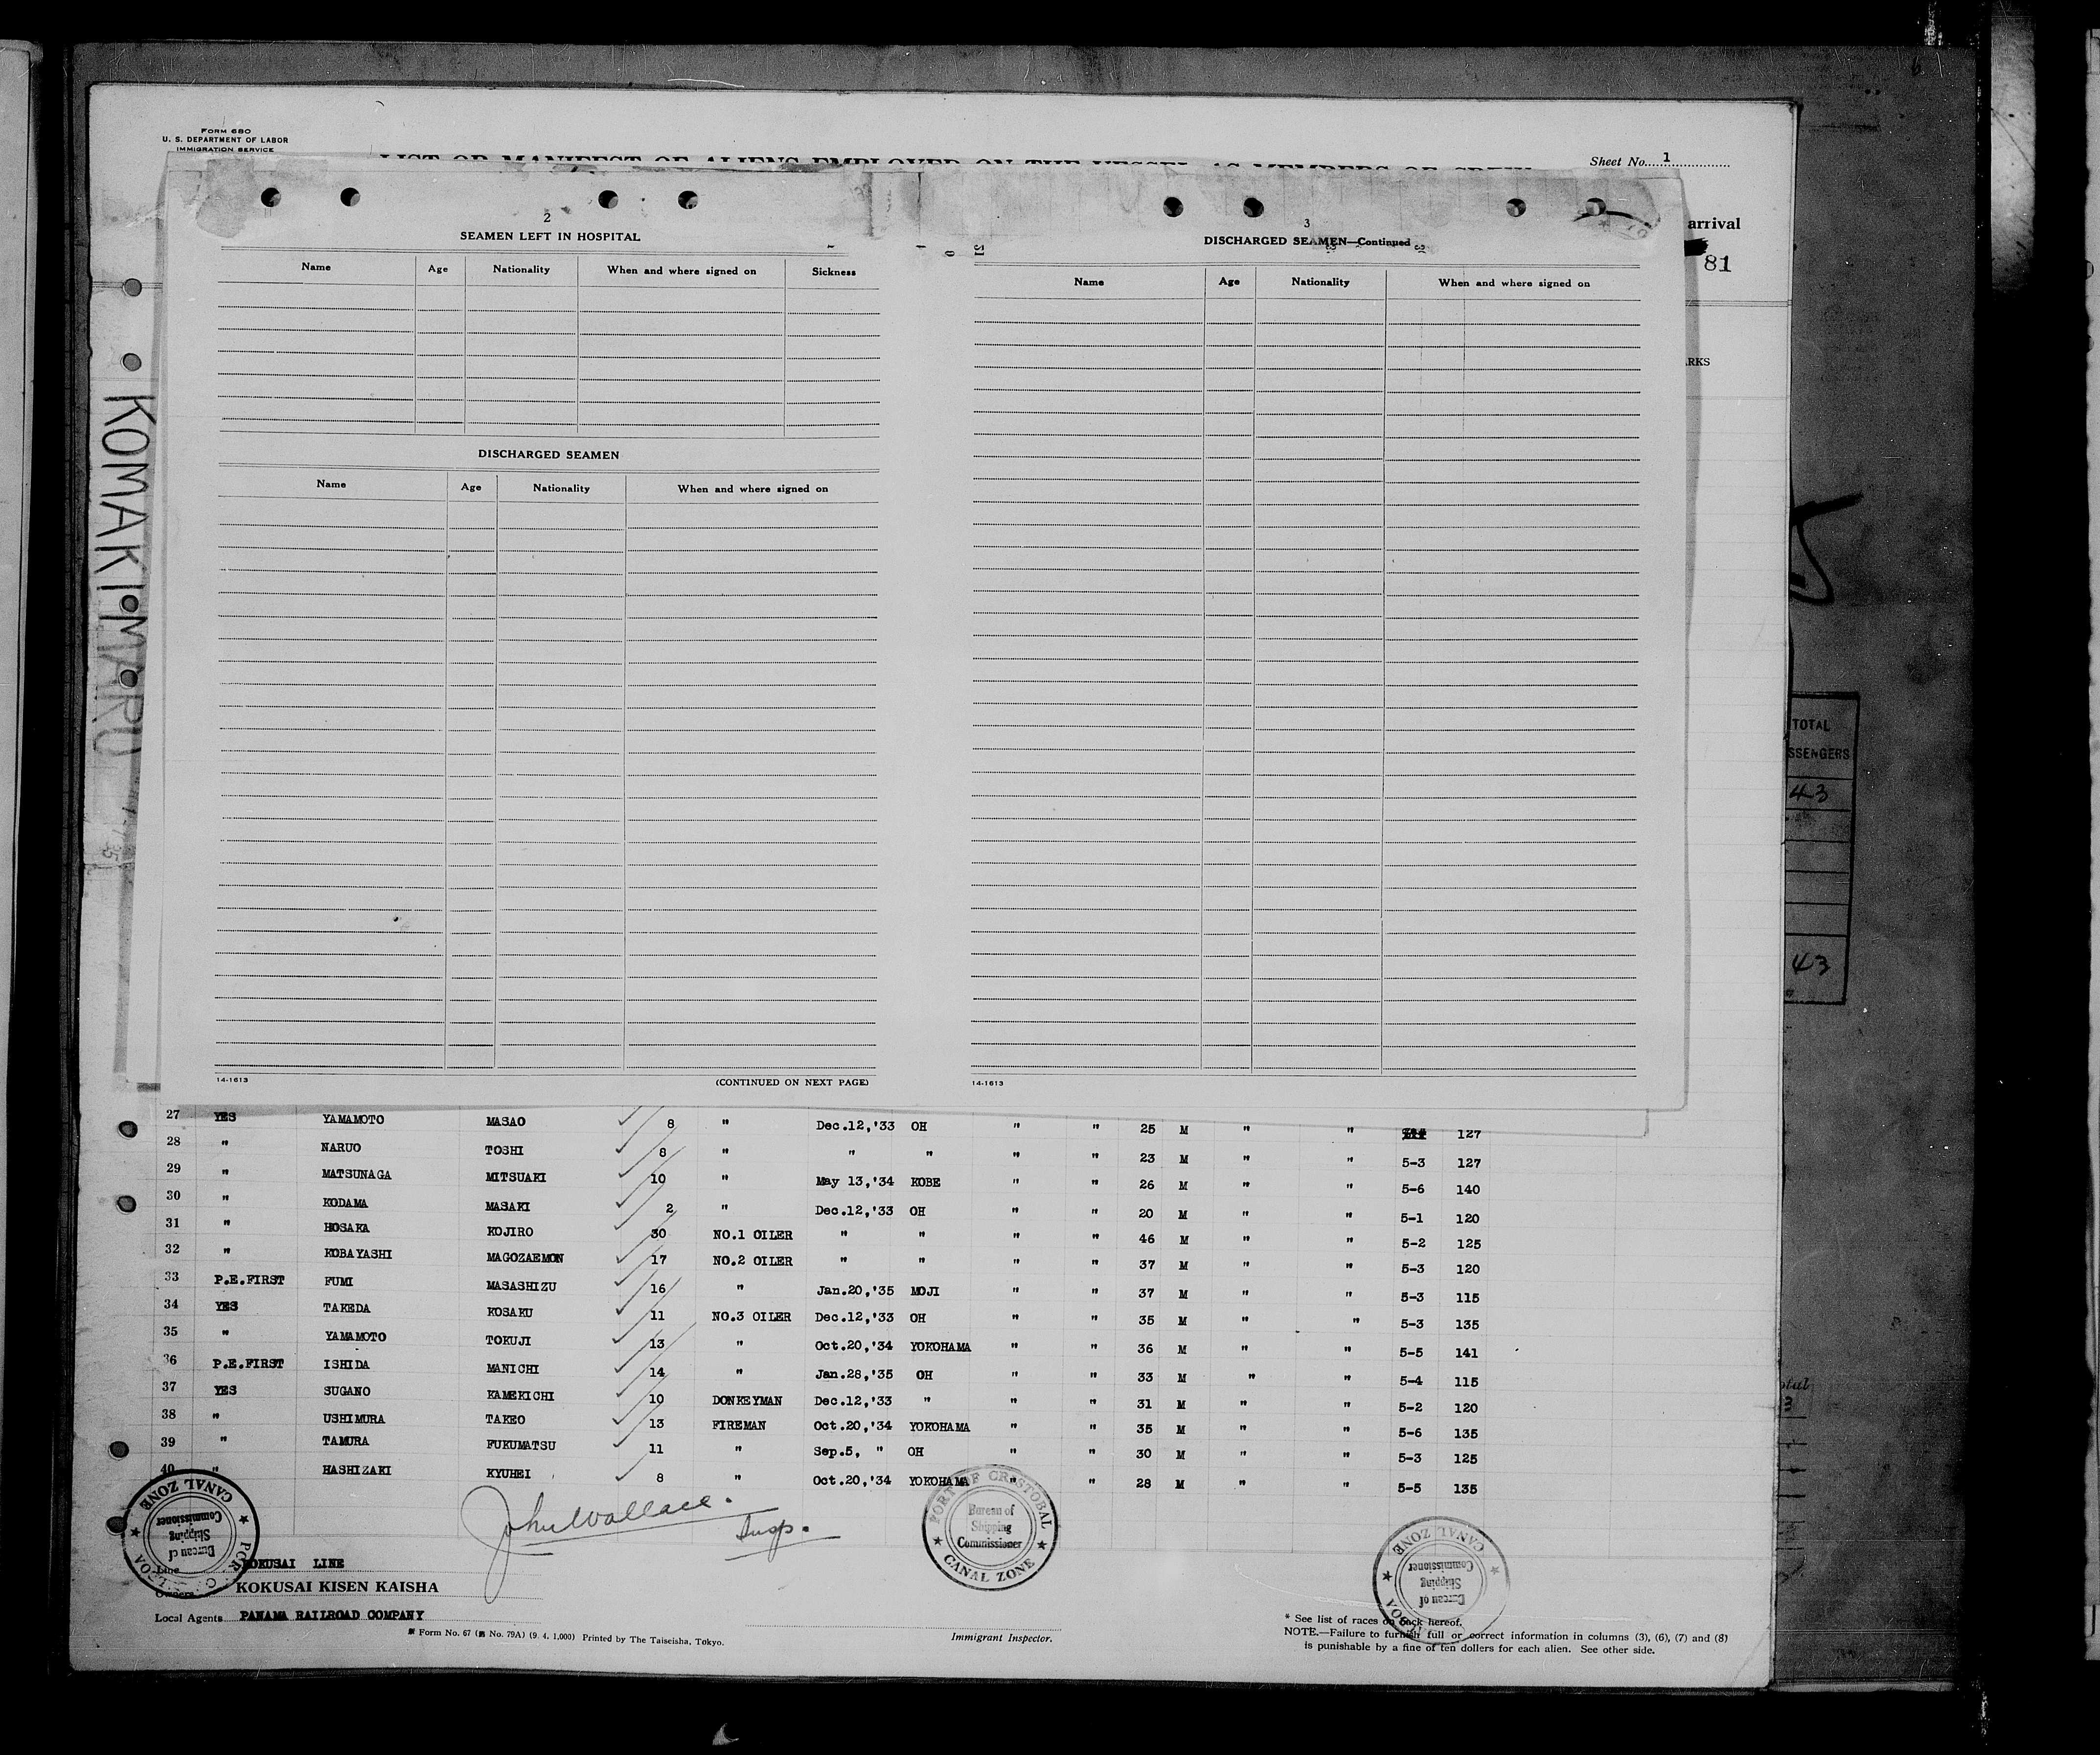 FORM 680
U. S. DEPARTMENT OF LABOR
IMMIGRATION SERVICE
LIST OR MANIFEST OF ALIENS EMPLOYED ON THE VESSEL AS MEMBERS OF CREW
Sheet No. 1
arrival
81
RKS
KOMAKI MARU
2
SEAMEN LEFT IN HOSPITAL
Name Age Nationality When and where signed on Sickness
DISCHARGED SEAMEN
Name Age Nationality When and where signed on
14-1613 (CONTINUED ON NEXT PAGE)
3
DISCHARGED SEAMEN—Continued
Name Age Nationality When and where signed on
14-1613
TOTAL
SSENGERS
43
43
27 YES YAMAMOTO MASAO 8 " Dec.12,'33 OH " " 25 M " " 127
28 " NARUO TOSHI 8 " " " " " 23 M " " 5-3 127
29 " MATSUNAGA MITSUAKI 10 " May 13,'34 KOBE " " 26 M " " 5-6 140
30 " KODAMA MASAKI 2 " Dec.12,'33 OH " " 20 M " " 5-1 120
31 " HOSAKA KOJIRO 30 NO.1 OILER " " " " 46 M " " 5-2 125
32 " KOBAYASHI MAGOZAEMON 17 NO.2 OILER " " " " 37 M " " 5-3 120
33 P.E.FIRST FUMI MASASHIZU 16 " Jan.20,'35 MOJI " " 37 M " " 5-3 115
34 YES TAKEDA KOSAKU 11 NO.3 OILER Dec.12,'33 OH " " 35 M " " 5-3 135
35 " YAMAMOTO TOKUJI 13 " Oct.20,'34 YOKOHAMA " " 36 M " " 5-5 141
36 P.E.FIRST ISHIDA MANICHI 14 " Jan.28,'35 OH " " 33 M " " 5-4 115
37 YES SUGANO KAMEKICHI 10 DONKEYMAN Dec.12,'33 " " " 31 M " " 5-2 120
38 " USHIMURA TAKEO 13 FIREMAN Oct.20,'34 YOKOHAMA " " 35 M " " 5-6 135
39 " TAMURA FUKUMATSU 11 " Sep.5, " OH " " 30 M " " 5-3 125
40 " HASHIZAKI KYUHEI 8 " Oct.20,'34 YOKOHAMA " " 28 M " " 5-5 135
John Wallace.
Insp.
PORT OF CRISTOBAL
Bureau of
Shipping
Commissioner
CANAL ZONE
Bureau of
Shipping
Commissioner
CANAL ZONE
Bureau of
Shipping
Commissioner
CANAL ZONE
Line KOKUSAI LINE
Owners KOKUSAI KISEN KAISHA
Local Agents PANAMA RAILROAD COMPANY
Form No. 67 (No. 79A) (9. 4. 1,000) Printed by The Taiseisha, Tokyo.
Immigrant Inspector.
* See list of races on back hereof.
NOTE.—Failure to furnish full or correct information in columns (3), (6), (7) and (8)
is punishable by a fine of ten dollars for each alien. See other side.